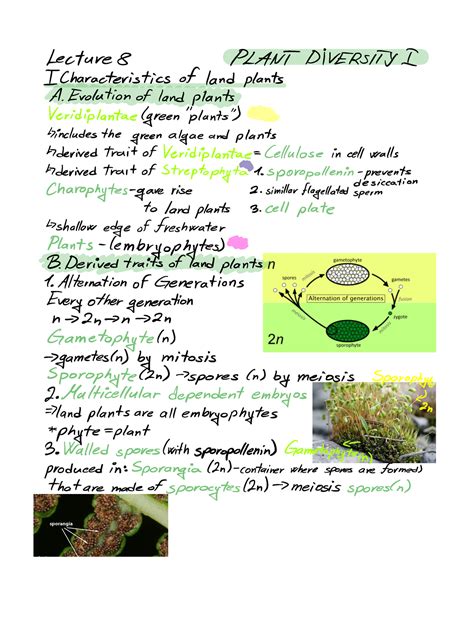 Lecture 8 PLANT DIVERSITY I
I Characteristics of land plants
A. Evolution of land plants
Veridiplantae (green "plants")
↳includes the green algae and plants
↳derived trait of Veridiplantae = Cellulose in cell walls
↳derived trait of Streptophyta 1. sporopollenin - prevents desiccation
Charophytes - gave rise 2. simillar flagellated sperm
to land plants 3. cell plate
↳shallow edge of freshwater
Plants - (embryophytes)
B. Derived traits of land plants
1. Alternation of Generations
Every other generation
n → 2n → n → 2n
Gametophyte (n)
→gametes(n) by mitosis
n
gametophyte
spores
mitosis
gametes
Alternation of generations
fusion
meiosis
zygote
mitosis
2n
sporophyte
Sporophyte (2n) → spores (n) by meiosis
2. Multicellular dependent embryos
⇒land plants are all embryophytes
*phyte = plant
3. Walled spores (with sporopollenin)
2n
produced in: Sporangia (2n) - container where spores are formed)
that are made of sporocytes (2n) → meiosis spores(n)
sporangia